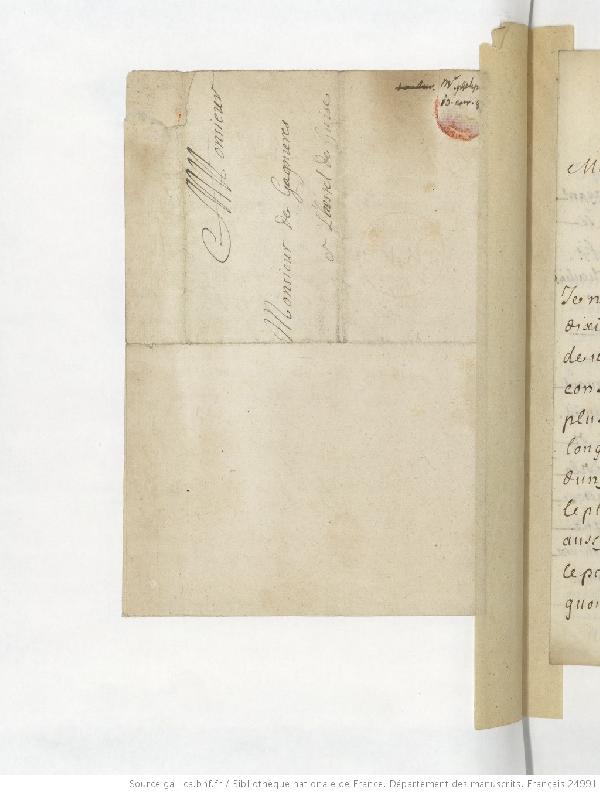 Monsieur
Monsieur de Gagnieres
a L'hostel de Guise
Je n
dixi
de
cons
plus
long
dun
le pl
ausy
le po
quon
Source gallica.bnf.fr / Bibliothèque nationale de France. Département des manuscrits. Français 24991